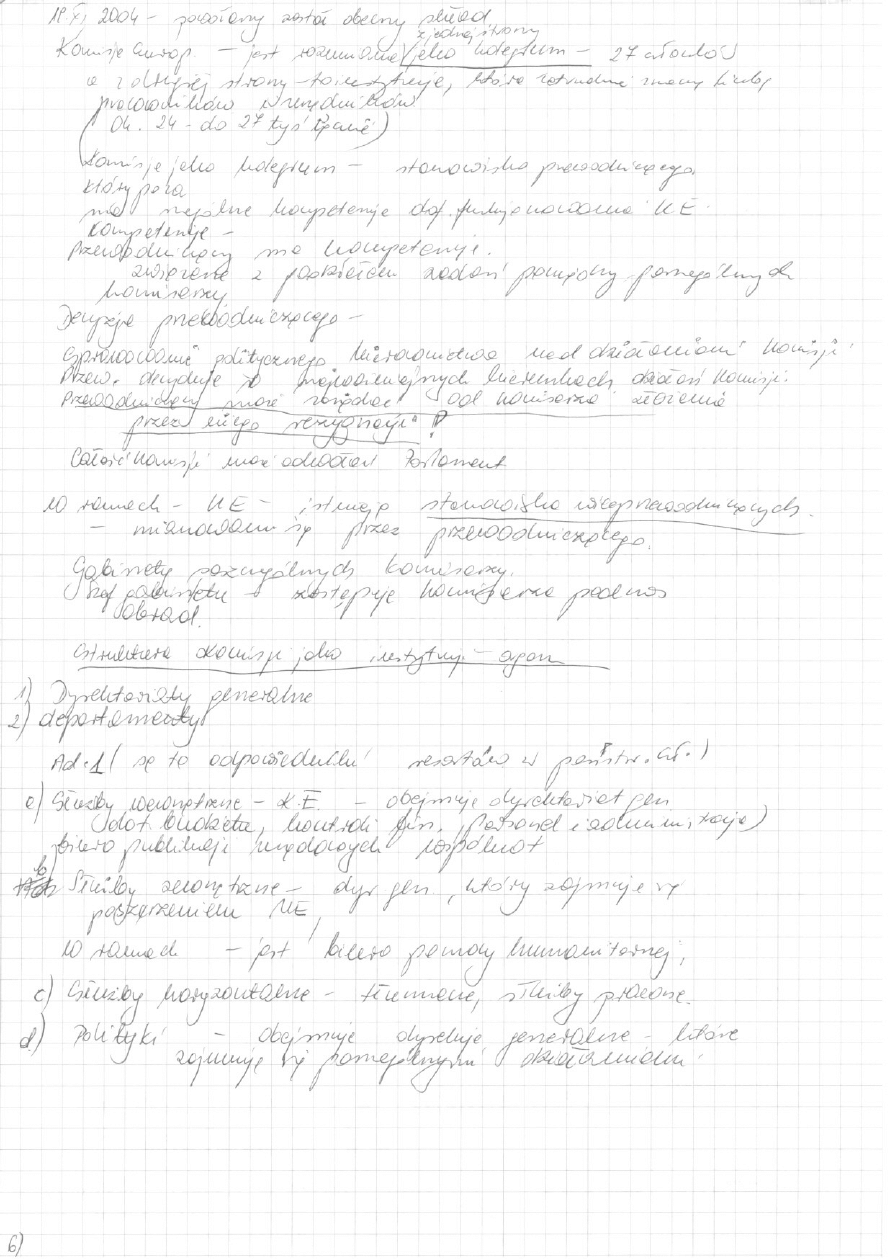 18.XI 2004 – powołany został obecny skład
z jednej strony
Komisja Europ. – jest rozumiana jako kolegium – 27 członków
a z drugiej strony – to instytucja, która zatrudnia znaną liczbę
pracowników urzędników
(Ok. 24 – do 27 tyś łącznie)
Komisja jako kolegium – stanowisko przewodniczącego
który poza
ma ogólne kompetencje dot. funkcjonowania UE.
Kompetencje –
Przewodniczący ma kompetencje.
związane z podziałem zadań pomiędzy poszczególnych
komisarzy
Decyzje przewodniczącego –
Sprawowanie politycznego kierownictwa nad działaniami Komisji
Przew. decyduje o najważniejszych kierunkach działań Komisji.
Przewodniczący może zażądać od komisarza złożenia
przez niego rezygnacji !
Całość Komisji może odwołać Parlament
W ramach – UE – istnieją stanowiska wiceprzewodniczących.
– mianowani są przez przewodniczącego.
Gabinety poszczególnych komisarzy.
Szef gabinetu – zastępuje komisarza podczas
obrad.
Struktura Komisji jako instytucji – organ
1) Dyrektoriaty generalne
2) departamenty
Ad. 1 ( są to odpowiedniki resortów w państw. czł. )
a) Służby wewnętrzne – K.E. – obejmuje dyrektoriat gen
(dot. budżetu, kontroli fin., personel i administracja)
biuro publikacji urzędowych wspólnot
b) Służby zewnętrzne – dyr gen, który zajmuje się
poszerzeniem UE,
W ramach – jest biuro pomocy humanitarnej,
c) Służby horyzontalne – tłumacze, służby prawne.
d) Polityki – obejmuje dyrekcje generalne – które
zajmują się poszczególnymi działaniami
6)